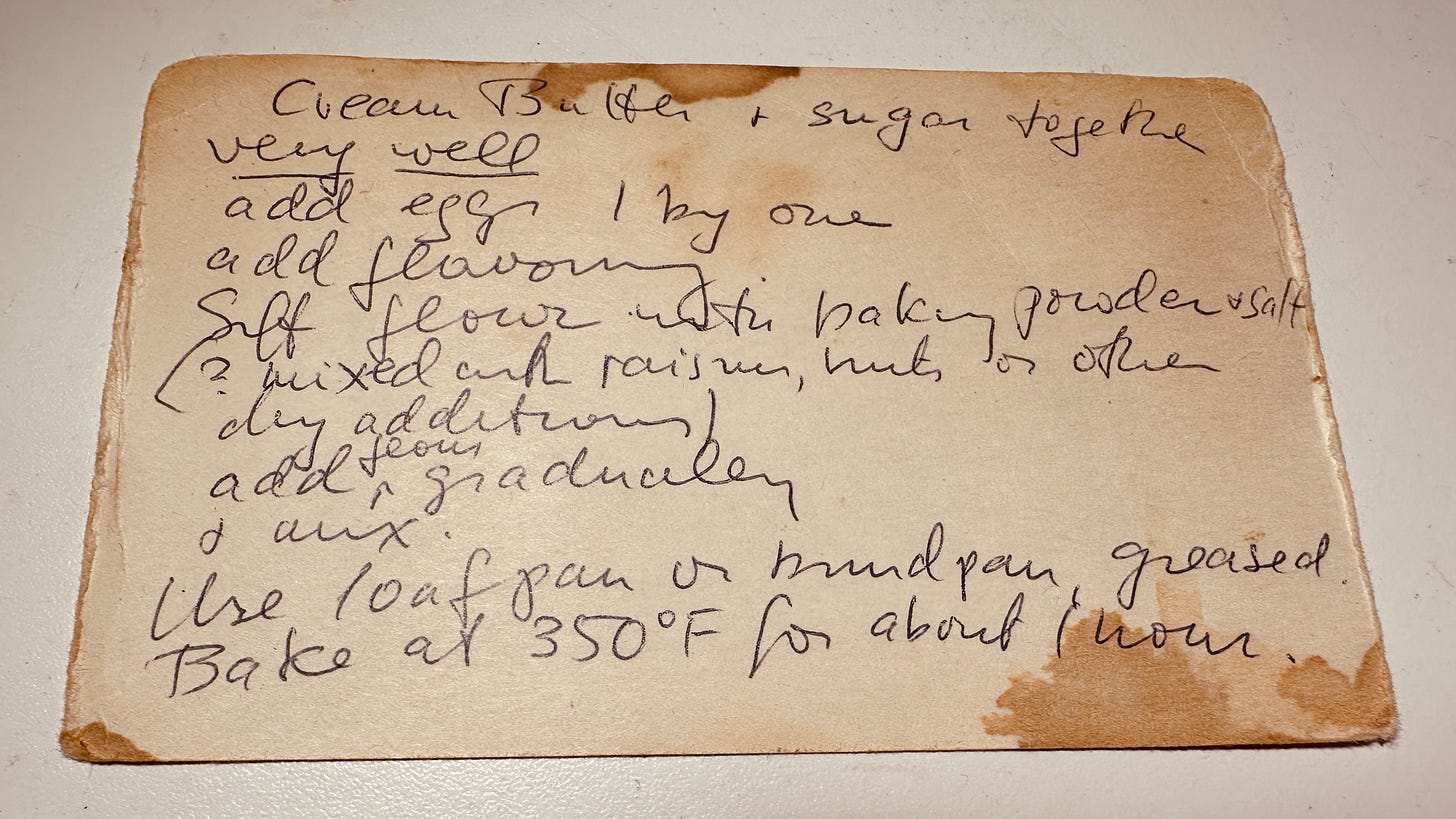 Cream Butter + sugar together
very well
add eggs 1 by one
add flavouring
Sift flour with baking powder + salt
(? mixed with raisins, nuts or other
dry additions)
add flour gradually
& mix.
Use loaf pan or bundpan, greased.
Bake at 350°F for about 1 hour.